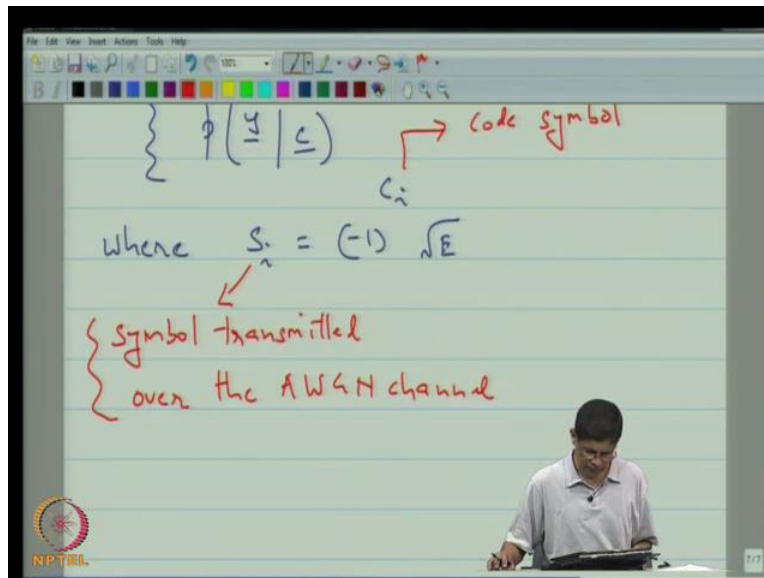 File Edit View Insert Actions Tools Help
100%
B I
{ p(y | c) → code symbol
where s_i = (-1)^{c_i} √E
{ symbol transmitted
over the AWGN channel
NPTEL
7/7